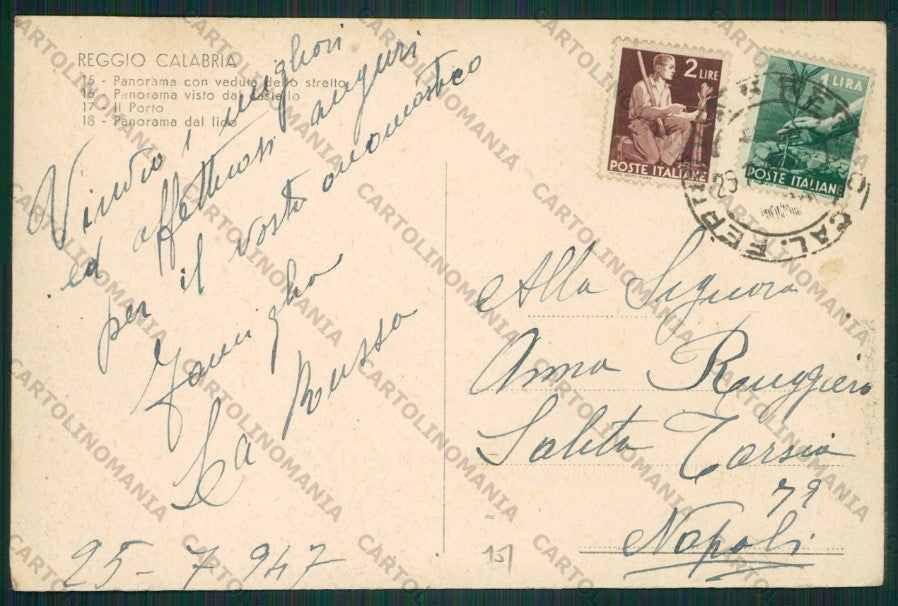 REGGIO CALABRIA
15 - Panorama con veduta dello stretto
16 - Panorama visto dal castello
17 - Il Porto
18 - Panorama dal lido
Vivissimi migliori
ed affettuosi auguri
per il vostro onomastico
Famiglia
La Russa
25-7 947
2 LIRE
POSTE ITALIANE
1 LIRA
POSTE ITALIANE
Alla Signora
Anna Ruggiero
Salita Tarsia
79
Napoli
151
CARTOLINOMANIA